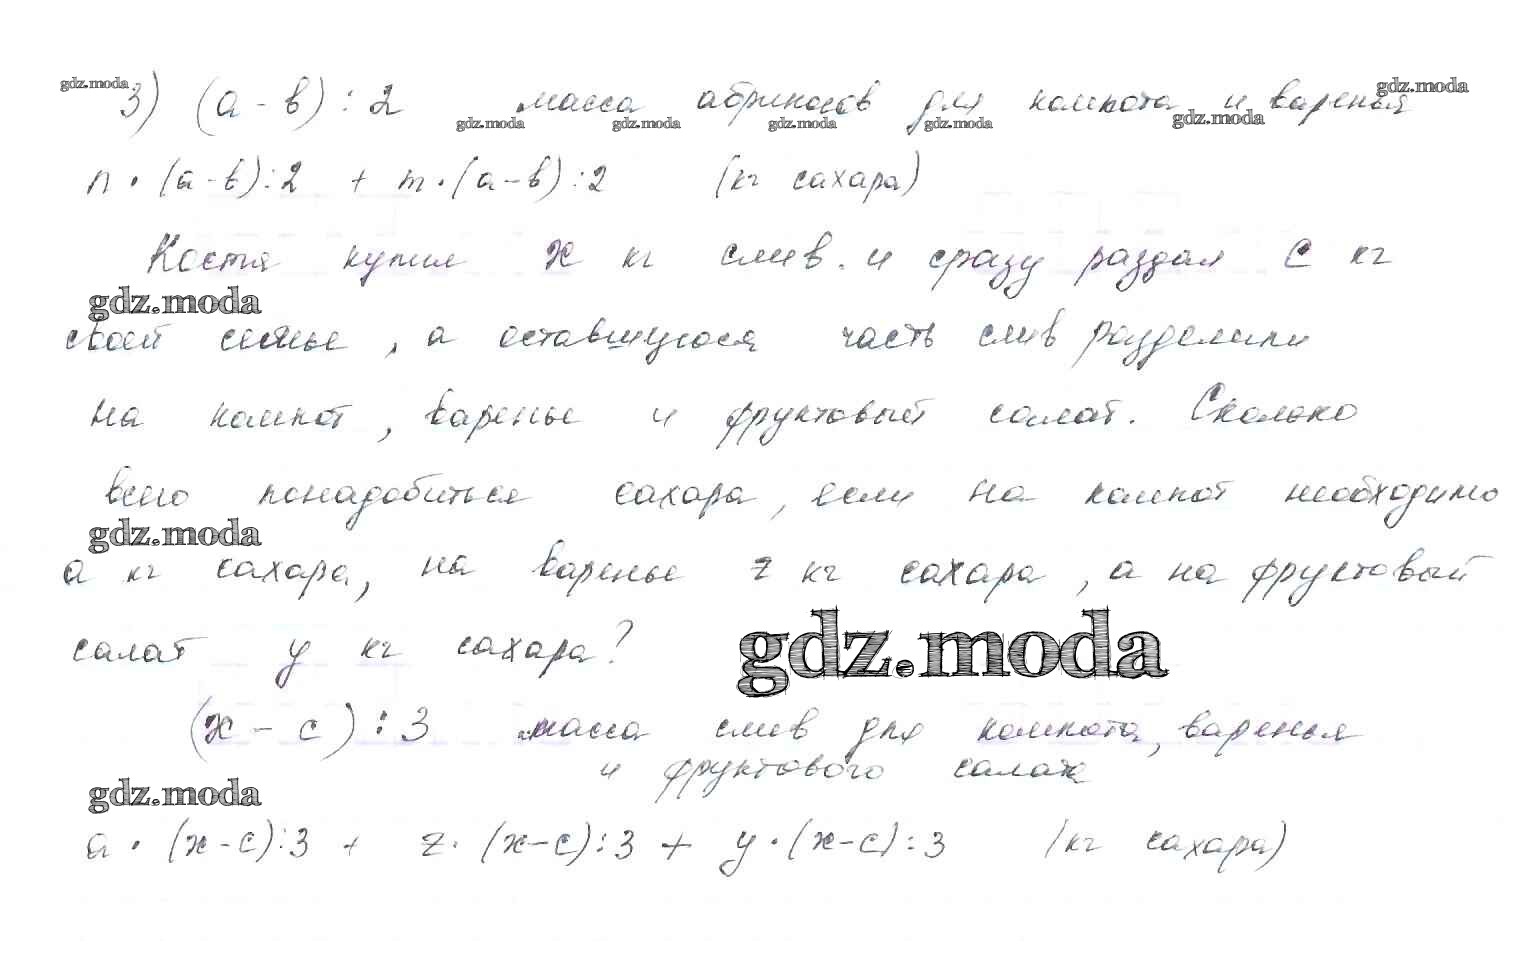 3) (а - в) : 2 масса абрикосов для компота и варенья
n · (а - в) : 2 + m · (а - в) : 2 (кг сахара)
Костя купил х кг слив. и сразу раздал с кг
своей семье, а оставшуюся часть слив разделили
на компот, варенье и фруктовый салат. Сколько
всего понадобиться сахара, если на компот необходимо
а кг сахара, на варенье z кг сахара, а на фруктовый
салат у кг сахара?
(х - с) : 3 масса слив для компота, варенья
и фруктового салата
а · (х - с) : 3 + z · (х - с) : 3 + у · (х - с) : 3 (кг сахара)
gdz.moda
gdz.moda
gdz.moda
gdz.moda
gdz.moda
gdz.moda
gdz.moda
gdz.moda
gdz.moda
gdz.moda
gdz.moda